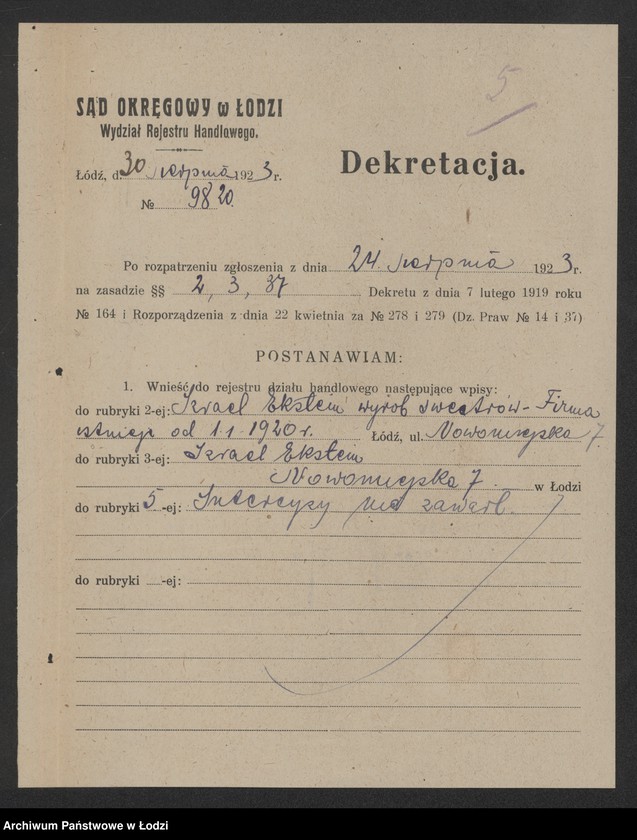 5
SĄD OKRĘGOWY w ŁODZI
Wydział Rejestru Handlowego.
Dekretacja.
Łódź, d. 30 sierpnia 1923 r.
№ 9820.
Po rozpatrzeniu zgłoszenia z dnia 24 sierpnia 1923 r.
na zasadzie §§ 2, 3, 37 Dekretu z dnia 7 lutego 1919 roku
№ 164 i Rozporządzenia z dnia 22 kwietnia za № 278 i 279 (Dz. Praw № 14 i 37)
POSTANAWIAM:
1. Wnieść do rejestru działu handlowego następujące wpisy:
do rubryki 2-ej: Izrael Ekstein wyrób swetrów - Firma
istnieje od 1.1.1920 r. Łódź, ul. Nowomiejska 7.
do rubryki 3-ej: Izrael Ekstein
Nowomiejska 7 w Łodzi
do rubryki 5-ej: Intercyzy nie zawarł.
do rubryki -ej:
Archiwum Państwowe w Łodzi